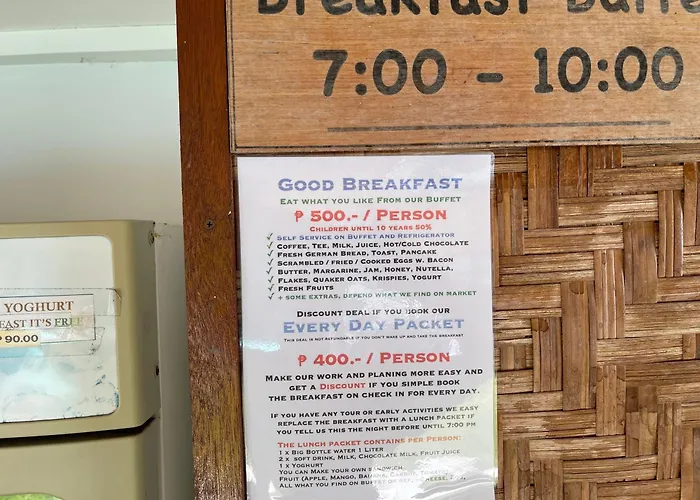 Breakfast Buffe
7:00 - 10:00
GOOD BREAKFAST
EAT WHAT YOU LIKE FROM OUR BUFFET
₱ 500.- / PERSON
CHILDREN UNTIL 10 YEARS 50%
✓ SELF SERVICE ON BUFFET AND REFRIGERATOR
✓ COFFEE, TEE, MILK, JUICE, HOT/COLD CHOCOLATE
✓ FRESH GERMAN BREAD, TOAST, PANCAKE
✓ SCRAMBLED / FRIED / COOKED EGGS W. BACON
✓ BUTTER, MARGARINE, JAM, HONEY, NUTELLA,
✓ FLAKES, QUAKER OATS, KRISPIES, YOGURT
✓ FRESH FRUITS
✓ + SOME EXTRAS, DEPEND WHAT WE FIND ON MARKET
DISCOUNT DEAL IF YOU BOOK OUR
EVERY DAY PACKET
THIS DEAL IS NOT REFUNDABLE IF YOU DON'T WAKE UP AND TAKE THE BREAKFAST
₱ 400.- / PERSON
MAKE OUR WORK AND PLANING MORE EASY AND
GET A DISCOUNT IF YOU SIMPLE BOOK
THE BREAKFAST ON CHECK IN FOR EVERY DAY.
IF YOU HAVE ANY TOUR OR EARLY ACTIVITIES WE EASY
REPLACE THE BREAKFAST WITH A LUNCH PACKET IF
YOU TELL US THIS THE NIGHT BEFORE UNTIL 7:00 PM
THE LUNCH PACKET CONTAINS PER PERSON:
1 X BIG BOTTLE WATER 1 LITER
2 X SOFT DRINK, MILK, CHOCOLATE MILK, FRUIT JUICE
1 X YOGHURT
YOU CAN MAKE YOUR OWN SANDWICH
FRUIT (APPLE, MANGO, BANANA,
ALL WHAT YOU FIND ON BUFFET CHEESE, EGG,
YOGHURT
FAST IT'S FREE
₱ 90.00